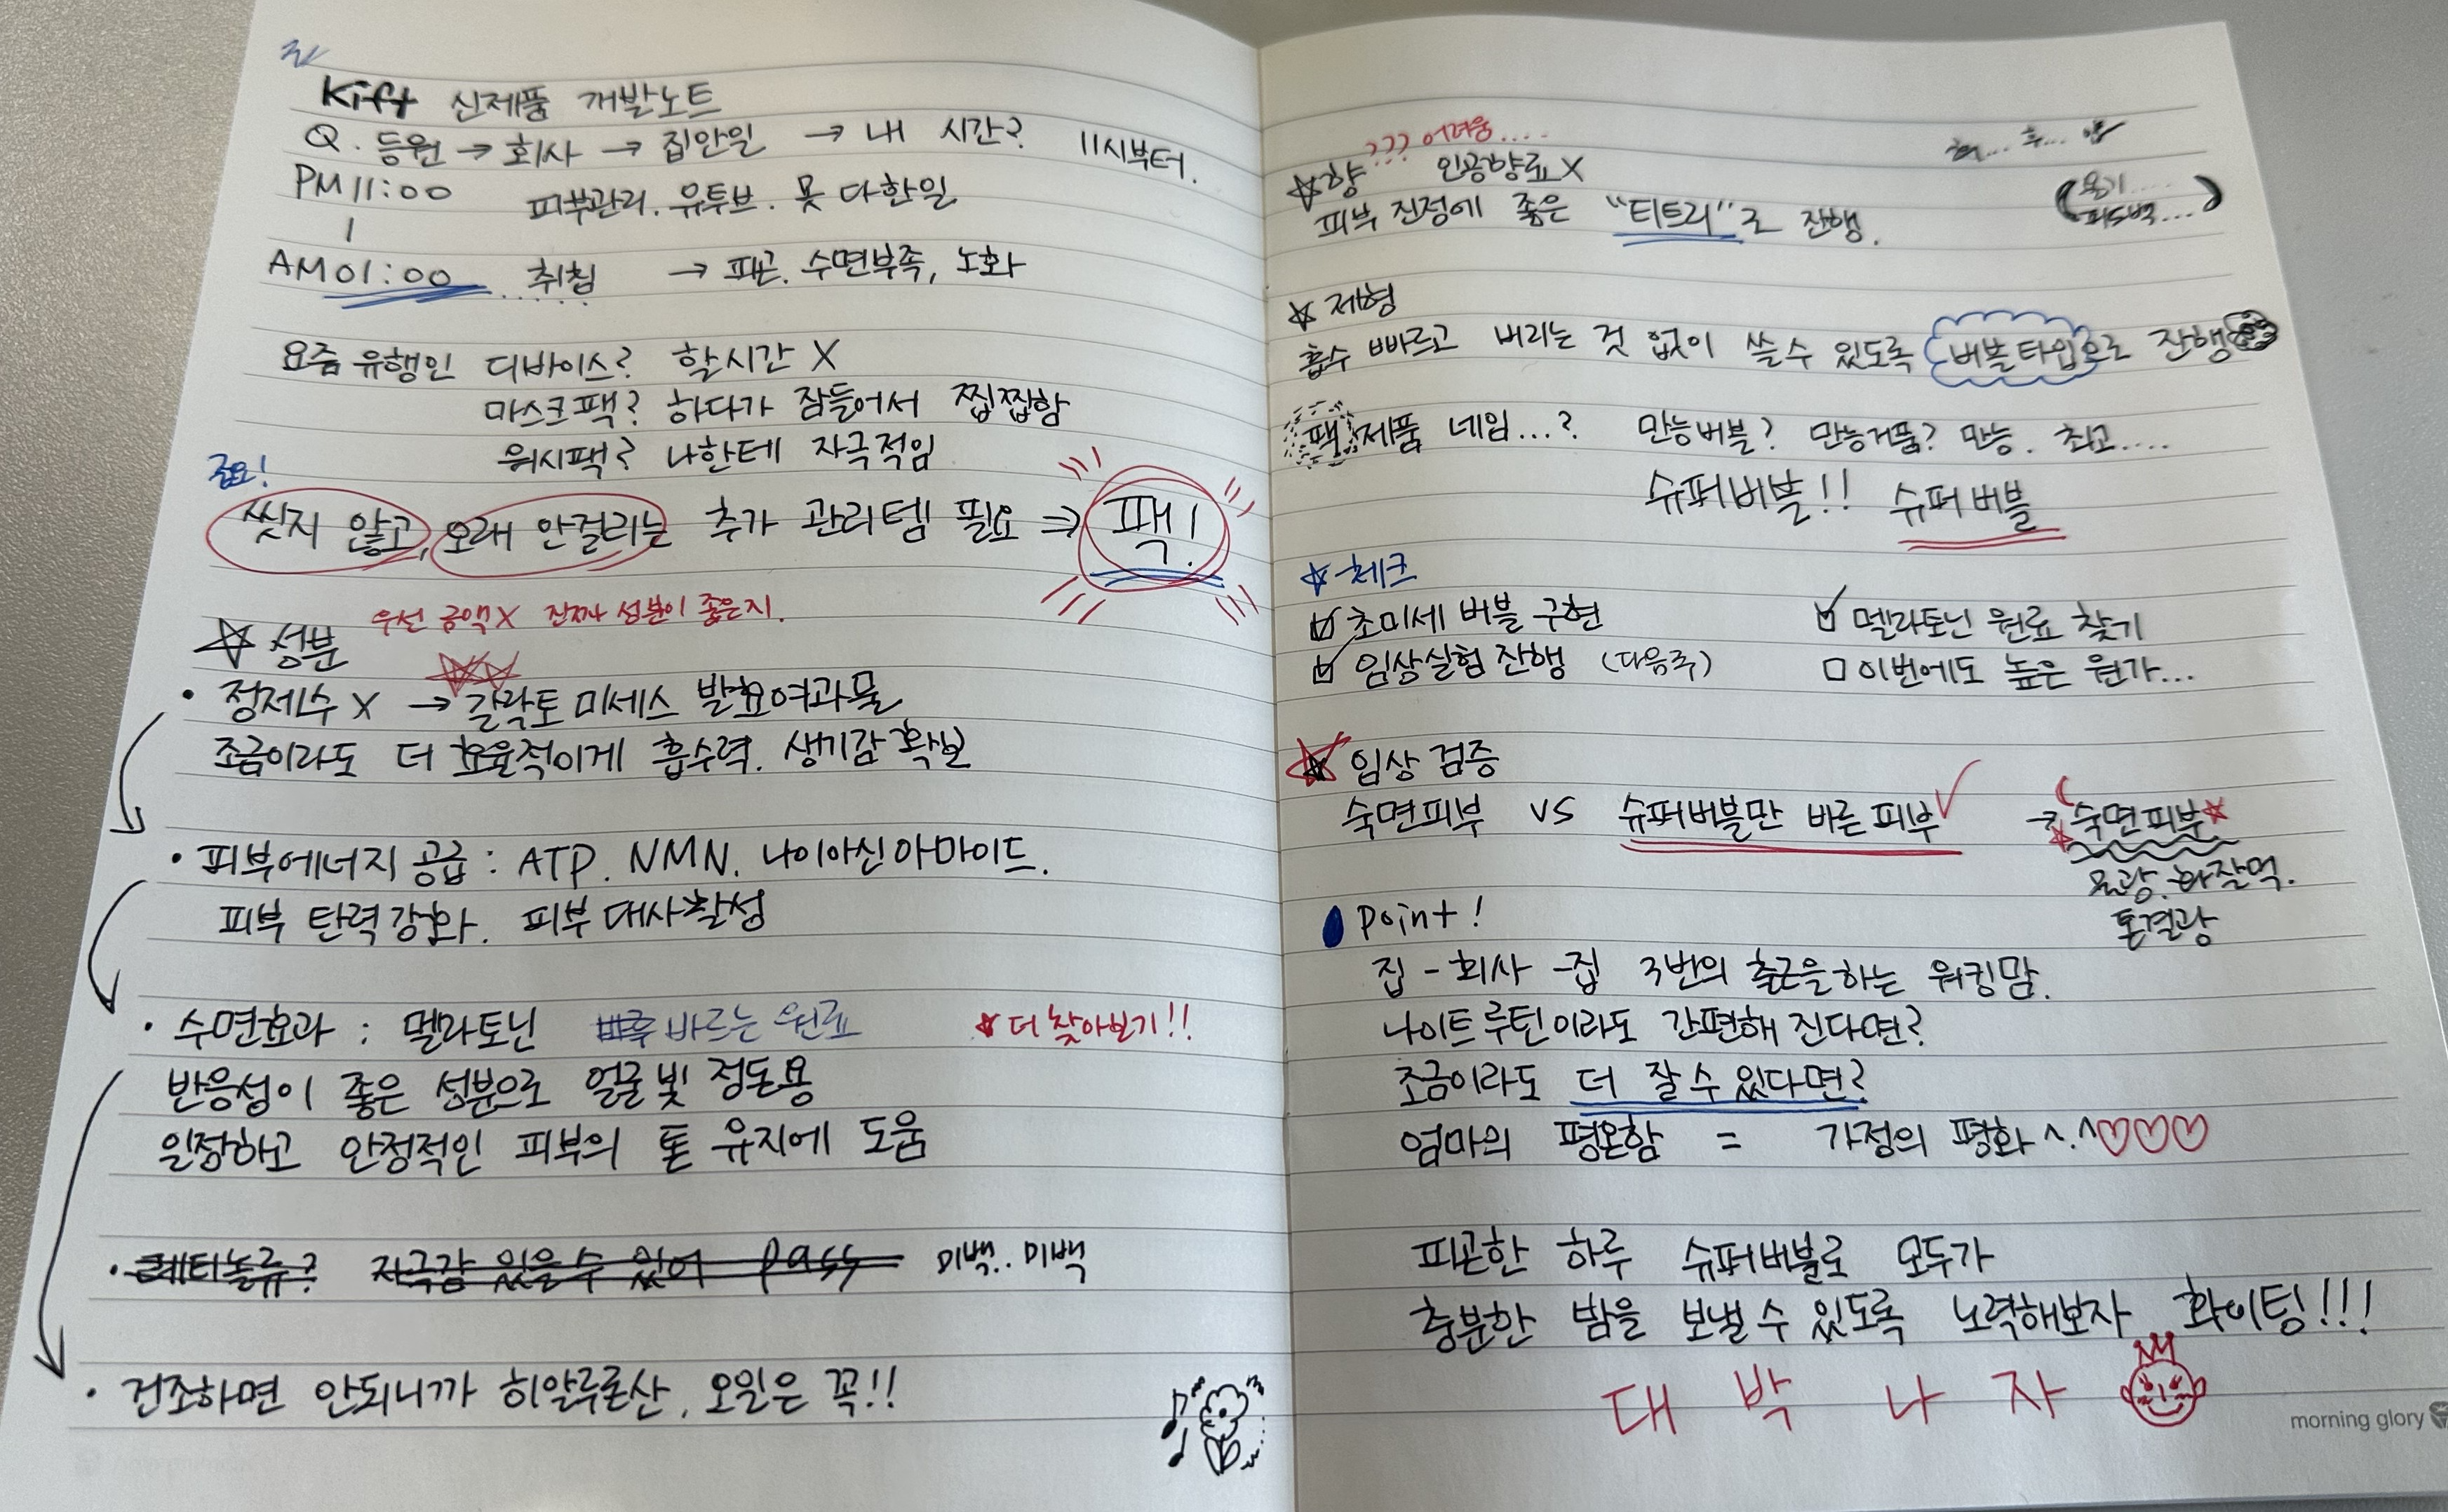 Kift 신제품 개발노트
Q. 등원 → 회사 → 집안일 → 내 시간? 11시부터.
PM 11:00 피부관리. 유투브. 못 다한일
AM 01:00 취침 → 피곤. 수면부족, 노화
요즘 유행인 디바이스? 할시간 X
마스크팩? 하다가 잠들어서 찝찝함
워시팩? 나한테 자극적임
중요!
씻지 않고, 오래 안걸리는 추가 관리템 필요 ⇒ 팩!
우선 금액X 진짜 성분이 좋은지.
☆ 성분
• 정제수 X → 갈락토미세스 발효여과물
조금이라도 더 효율적이게 흡수력. 생기감 확보
• 피부에너지 공급 : ATP. NMN. 나이아신아마이드.
피부 탄력강화. 피부대사활성
• 수면효과 : 멜라토닌 바르는 원료 ★ 더 찾아보기!!
반응성이 좋은 성분으로 얼굴빛 정돈용
일정하고 안정적인 피부의 톤 유지에 도움
• 레티놀류? 자극감 있을수 있어 pass 미백.. 미백
• 건조하면 안되니까 히알루론산, 오일은 꼭!!
??? 어려움....
☆향 인공향료X
피부 진정에 좋은 "티트리"로 진행.
용기.....
☆ 제형
흡수 빠르고 버리는 것 없이 쓸수 있도록 버블타입으로 진행
팩 제품 네임...? 만능버블? 만능거품? 만능. 최고....
슈퍼버블!! 슈퍼버블
☆체크
☑ 초미세 버블 구현 ☑ 멜라토닌 원료 찾기
☑ 임상실험 진행 (다음주) □ 이번에도 높은 원가...
☆ 임상 검증
숙면피부 vs 슈퍼버블만 바른 피부 ✓ → 숙면피부
물광. 화잘먹.
톤결광
Point!
집 - 회사 - 집 3번의 출근을하는 워킹맘.
나이트루틴이라도 간편해 진다면?
조금이라도 더 잘수 있다면?
엄마의 평온함 = 가정의 평화 ^.^♡♡♡
피곤한 하루 슈퍼버블로 모두가
충분한 밤을 보낼수 있도록 노력해보자 화이팅!!!
대 박 나 자
morning glory